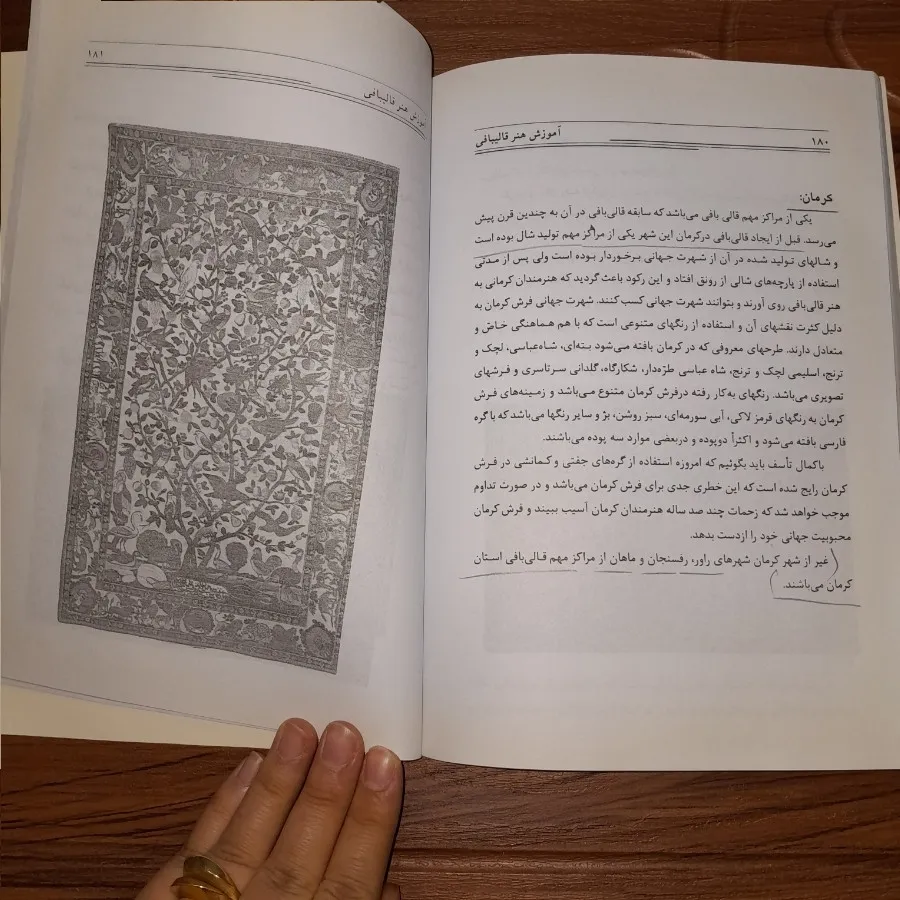 ۱۸۰
آموزش هنر قالیبافی
کرمان:
یکی از مراکز مهم قالی بافی می‌باشد که سابقه قالی‌بافی در آن به چندین قرن پیش
می‌رسد. قبل از ایجاد قالی‌بافی درکرمان این شهر یکی از مراکز مهم تولید شال بوده است
و شالهای تولید شده در آن از شهرت جهانی برخوردار بوده است ولی پس از مدتی
استفاده از پارچه‌های شالی از رونق افتاد و این رکود باعث گردید که هنرمندان کرمانی به
هنر قالی‌بافی روی آورند و بتوانند شهرت جهانی کسب کنند. شهرت جهانی فرش کرمان به
دلیل کثرت نقشهای آن و استفاده از رنگهای متنوعی است که با هم هماهنگی خاص و
متعادل دارند. طرحهای معروفی که در کرمان بافته می‌شود بته‌ای، شاه‌عباسی، لچک و
ترنج، اسلیمی لچک و ترنج، شاه عباسی طره‌دار، شکارگاه، گلدانی سرتاسری و فرشهای
تصویری می‌باشد. رنگهای به‌کار رفته درفرش کرمان متنوع می‌باشد و زمینه‌های فرش
کرمان به رنگهای قرمز لاکی، آبی سورمه‌ای، سبز روشن، بژ و سایر رنگها می‌باشد که با گره
فارسی بافته می‌شود و اکثراً دوپوده و دربعضی موارد سه پوده می‌باشند.
باکمال تأسف باید بگوئیم که امروزه استفاده از گره‌های جفتی و کمانشی در فرش
کرمان رایج شده است که این خطری جدی برای فرش کرمان می‌باشد و در صورت تداوم
موجب خواهد شد که زحمات چند صد ساله هنرمندان کرمان آسیب ببیند و فرش کرمان
محبوبیت جهانی خود را ازدست بدهد.
غیر از شهر کرمان شهرهای راور، رفسنجان و ماهان از مراکز مهم قالی‌بافی استان
کرمان می‌باشند.
آموزش هنر قالیبافی
۱۸۱